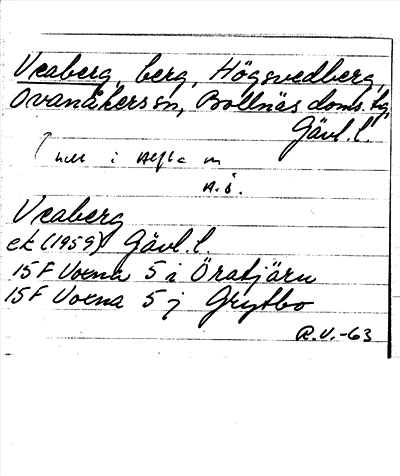 Vraberg, berg, Högsvedberg,
Ovanåkers sn, Bollnäs doms. tg,
Gävl. l.
i Alfta
Vraberg
ek (1959) Gävl. l.
15 F Voxna 5 i Öratjärn
15 F Voxna 5 j Grytbo
R.V.-63